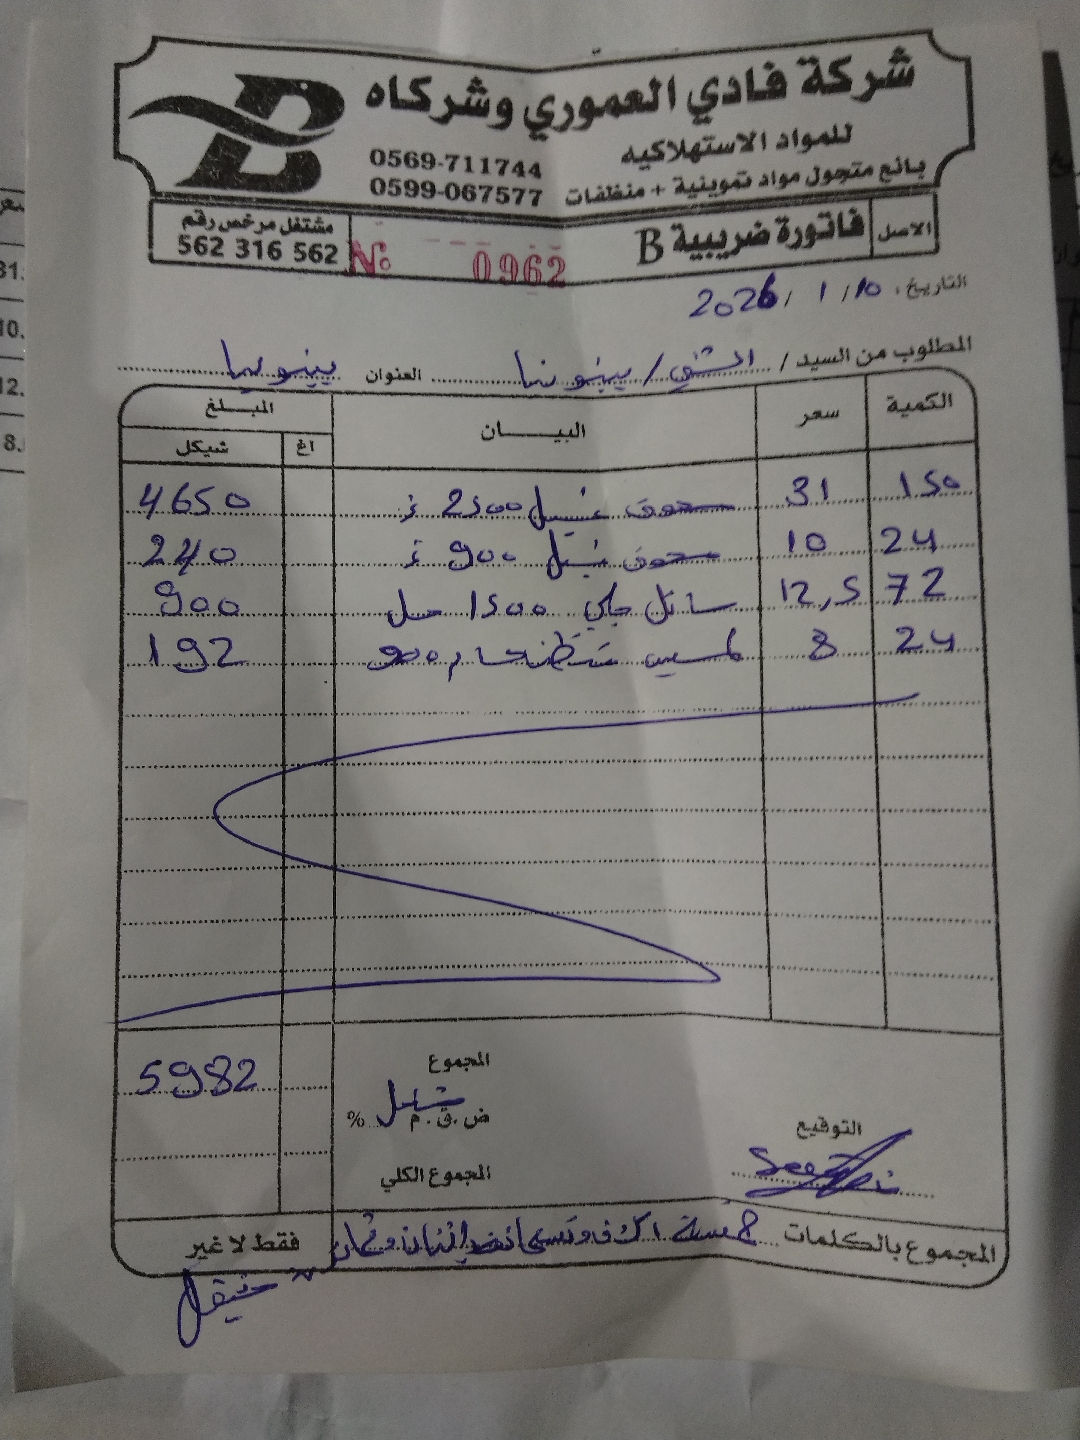 شركة فادي العموري وشركاه
للمواد الاستهلاكيه
بائع متجول مواد تموينية + منظفات
0569-711744
0599-067577
الاصل
فاتورة ضريبية B
No 0962
مشتغل مرخص رقم
562 316 562
التاريخ: 10 / 1 / 2026
المطلوب من السيد / العنوان
الكمية سعر البيـــــان المبـــلغ
اغ شيكل
150 31 مسحوق غسيل 2500 غ 4650
24 10 مسحوق غسيل 900 غ 240
72 12,5 سائل جلي 1500 مل 900
24 8 192
المجموع 5982
شامل
ض.ق.م %
المجموع الكلي
التوقيع
المجموع بالكلمات خمسة الاف وتسعمائة اثنان وثمانون شيقل فقط لا غير
31.
10.
12.
8.